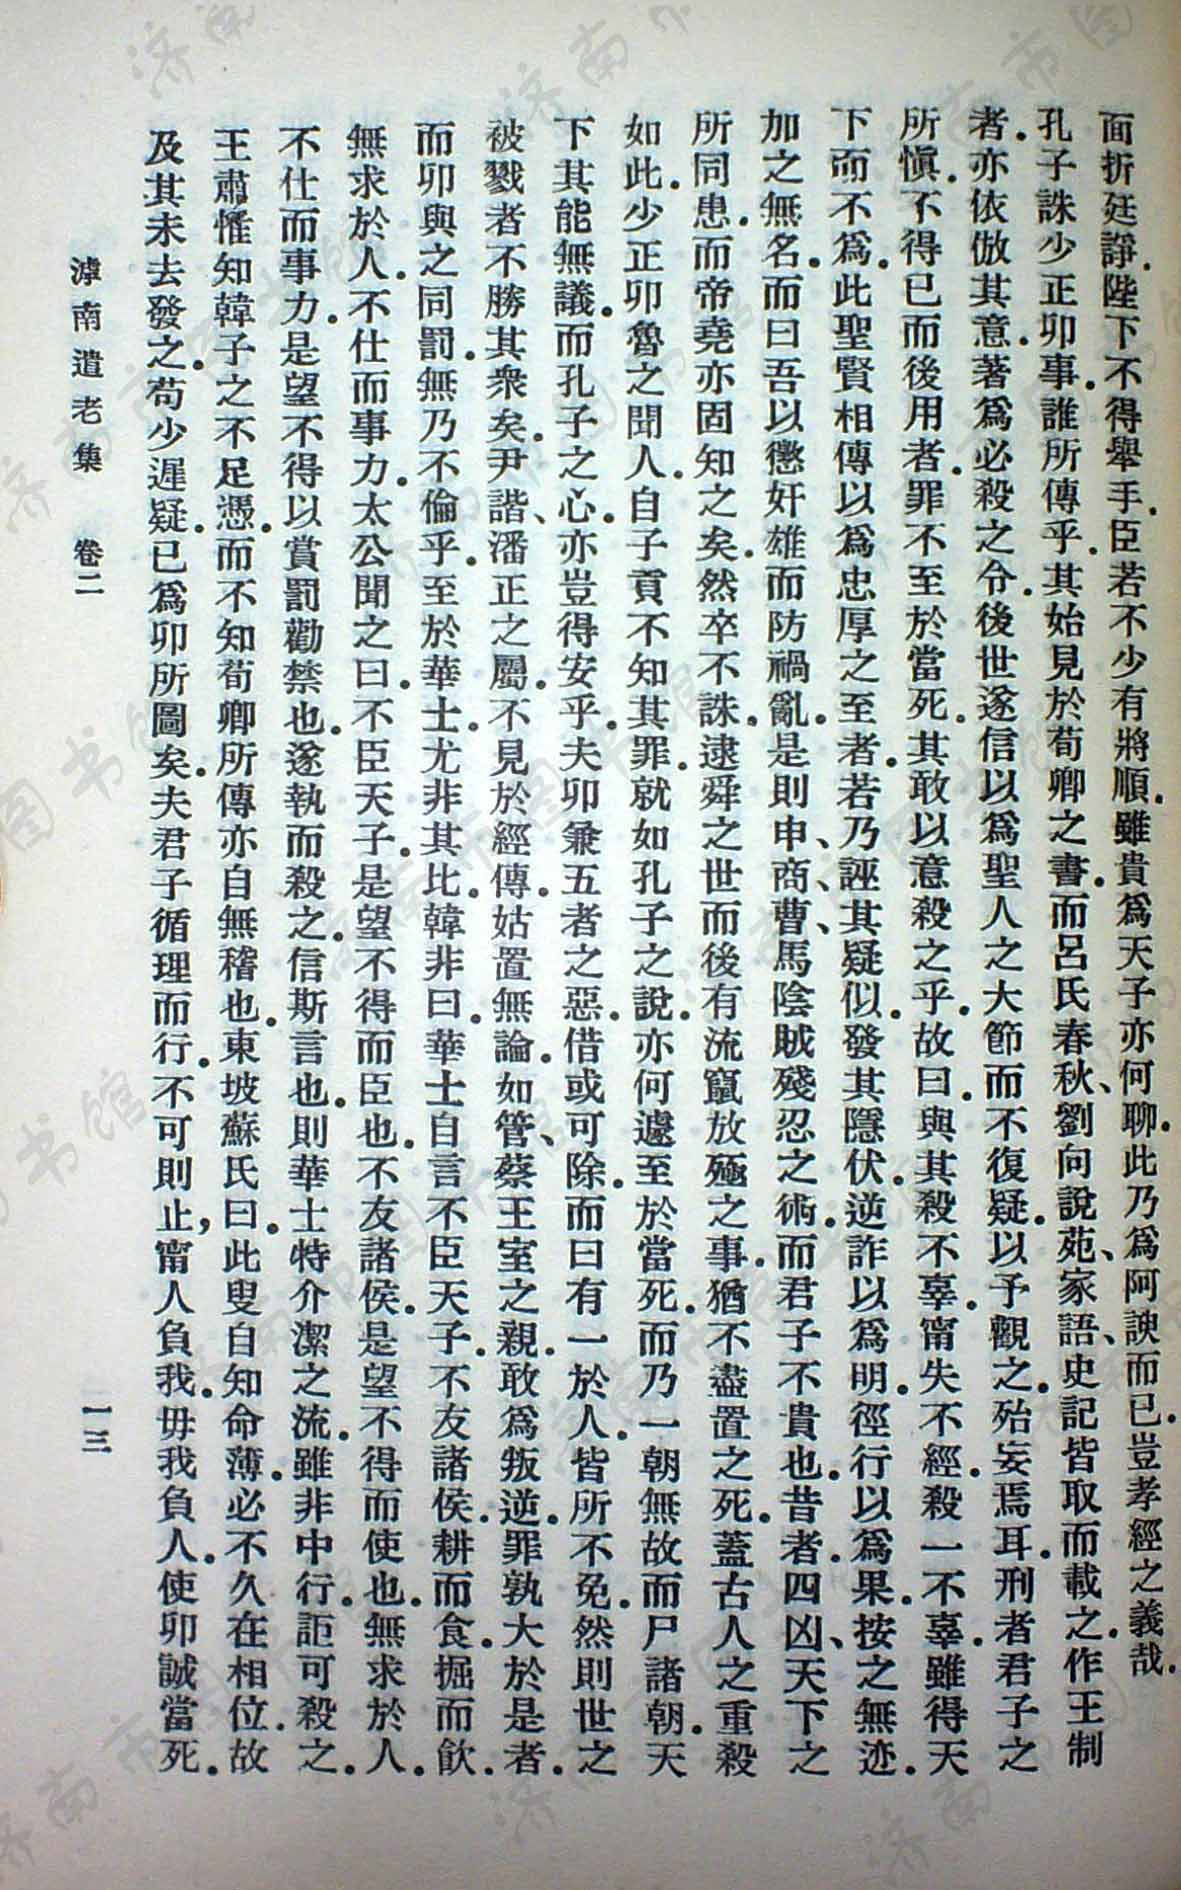 面折廷諍。陛下不得舉手。臣若不少有將順。雖貴爲天子亦何聊。此乃爲阿諛而已。豈孝經之義哉。
孔子誅少正卯事。誰所傳乎。其始見於荀卿之書。而呂氏春秋、劉向說苑、家語、史記皆取而載之。作王制
者。亦依倣其意。著爲必殺之令。後世遂信以爲聖人之大節而不復疑。以予觀之。殆妄焉耳。刑者君子之
所愼。不得已而後用者。罪不至於當死。其敢以意殺之乎。故曰。與其殺不辜。甯失不經。殺一不辜。雖得天
下而不爲。此聖賢相傳以爲忠厚之至者。若乃誣其疑似。發其隱伏。逆詐以爲明。徑行以爲果。按之無迹。
加之無名。而曰吾以懲奸雄而防禍亂。是則申、商、曹、馬陰賊殘忍之術。而君子不貴也。昔者。四凶、天下之
所同患。而帝堯亦固知之矣。然卒不誅。逮舜之世而後有流竄放殛之事。猶不盡置之死。蓋古人之重殺
如此。少正卯魯之聞人。自子貢不知其罪。就如孔子之說。亦何遽至於當死。而乃一朝無故而尸諸朝。天
下其能無議。而孔子之心。亦豈得安乎。夫卯兼五者之惡。借或可除。而曰有一於人。皆所不免。然則世之
被戮者不勝其衆矣。尹諧、潘正之屬。不見於經傳。姑置無論。如管、蔡王室之親。敢爲叛逆。罪孰大於是者。
而卯與之同罰。無乃不倫乎。至於華士。尤非其比。韓非曰。華士自言不臣天子。不友諸侯。耕而食。掘而飲。
無求於人。不仕而事力。太公聞之曰。不臣天子。是望不得而臣也。不友諸侯。是望不得而使也。無求於人。
不仕而事力。是望不得以賞罰勸禁也。遂執而殺之。信斯言也。則華士特介潔之流。雖非中行。詎可殺之。
王肅惟知韓子之不足憑。而不知荀卿所傳亦自無稽也。東坡蘇氏曰。此叟自知命薄。必不久在相位。故
及其未去發之。苟少遲疑。已爲卯所圖矣。夫君子循理而行。不可則止，甯人負我。毋我負人。使卯誠當死。
滹南遺老集 卷二
一三